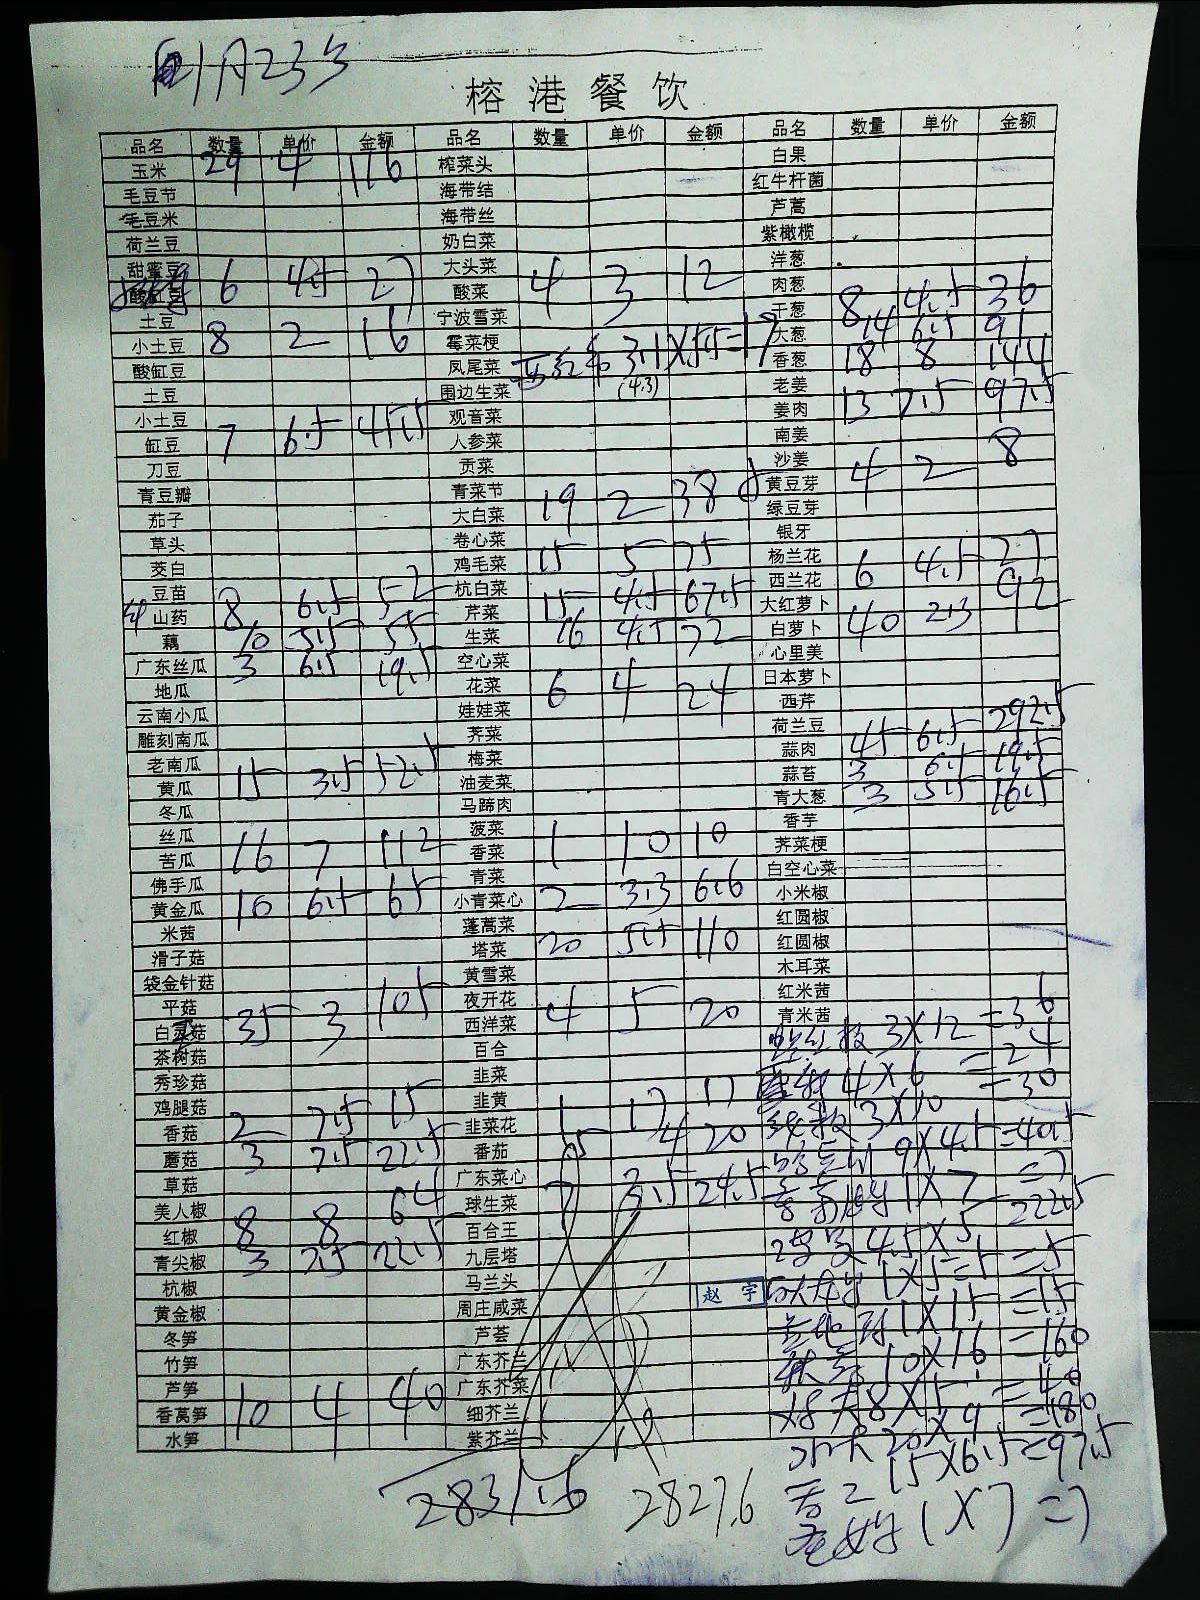 1月23号
榕港餐饮
品名 数量 单价 金额 品名 数量 单价 金额 品名 数量 单价 金额
玉米 29 4 116 榨菜头 白果
毛豆节 海带结 红牛杆菌
毛豆米 海带丝 芦蒿
荷兰豆 奶白菜 紫橄榄
甜蜜豆 大头菜 洋葱
酸缸豆 6 4.5 27 酸菜 4 3 12 肉葱
土豆 宁波雪菜 干葱 8 4.5 36
小土豆 8 2 16 霉菜梗 大葱 14 6.5 91
酸缸豆 凤尾菜 西红布 3.1X5.5=17 香葱 18 8 144
土豆 围边生菜 (4.3) 老姜
小土豆 观音菜 姜肉 13 7.5 97.5
缸豆 7 6.5 45.5 人参菜 南姜
刀豆 贡菜 沙姜 8
青豆瓣 青菜节 黄豆芽 4 2
茄子 大白菜 19 2 38 绿豆芽
草头 卷心菜 银牙
茭白 鸡毛菜 15 5 75 杨兰花
豆苗 杭白菜 西兰花 6 4.5 27
山药 8 6.5 52 芹菜 15 4.5 67.5 大红萝卜
藕 10 5.5 55 生菜 16 4.5 72 白萝卜 40 2.3 92
广东丝瓜 3 6.5 19.5 空心菜 心里美
地瓜 花菜 6 4 24 日本萝卜
云南小瓜 娃娃菜 西芹
雕刻南瓜 荠菜 荷兰豆
老南瓜 梅菜 蒜肉 45 6.5 292.5
黄瓜 15 3.5 52.5 油麦菜 蒜苔 3 6.5 19.5
冬瓜 马蹄肉 青大葱 3 5.5 16.5
丝瓜 菠菜 香芋
苦瓜 16 7 112 香菜 1 10 10 荠菜梗
佛手瓜 青菜 白空心菜
黄金瓜 10 6.5 65 小青菜心 2 3.3 6.6 小米椒
米茜 蓬蒿菜 红圆椒
滑子菇 塔菜 20 5.5 110 红圆椒
袋金针菇 黄雪菜 木耳菜
平菇 夜开花 红米茜
白灵菇 35 3 105 西洋菜 4 5 20 青米茜
茶树菇 百合 3X12=36
秀珍菇 韭菜 4X6=24
鸡腿菇 韭黄 3X10=30
香菇 2 7.5 15 韭菜花 1 17 17
蘑菇 3 7.5 22.5 番茄 5 4 20 9X4.5=40.5
草菇 广东菜心 1X7=7
美人椒 球生菜 7 3.5 24.5
红椒 8 8 64 百合王 45X5=222.5
青尖椒 3 7.5 22.5 九层塔
杭椒 马兰头 赵宇 1X5=5 =5
黄金椒 周庄咸菜 1X15=15
冬笋 芦荟
竹笋 广东芥兰 10X16=160
芦笋 广东芥菜 8X5=40
香莴笋 10 4 40 细芥兰 20X9=180
水笋 紫芥兰
15X6.5=97.5
2831.6 2827.6
1X7=7